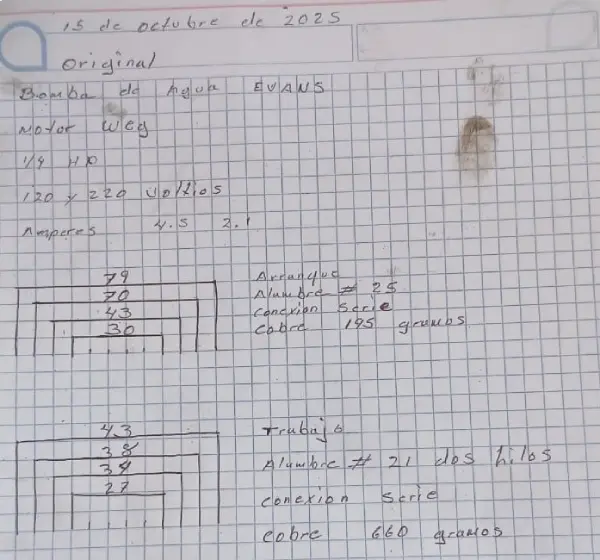 15 de octubre de 2025
Original
Bomba de Agua EVANS
Motor Weg
1/4 HP
120 y 220 voltios
Amperes 4.5 2.1
79
70
43
30
Arranque
Alambre # 25
conexion Serie
Cobre 195 gramos
43
38
34
27
Trabajo
Alambre # 21 dos hilos
conexion serie
cobre 660 gramos